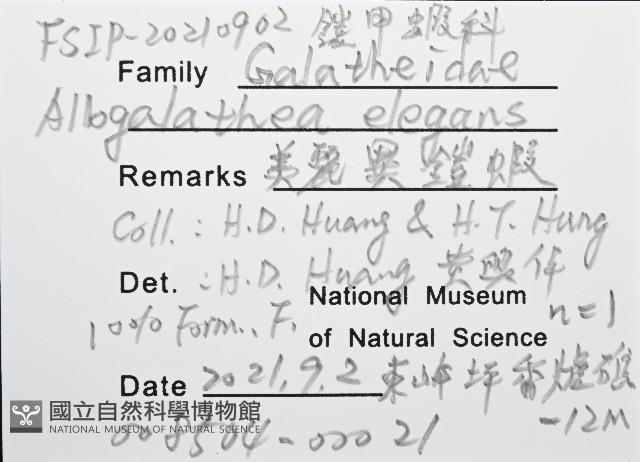 FSIP-20210902 鎧甲蝦科
Family Galatheidae
Allogalathea elegans
Remarks 美麗異鎧蝦
Coll.: H.D. Huang & H.T. Hung
Det. : H.D. Huang 黃興倬
10% Form., F. National Museum n=1
of Natural Science
Date 2021.9.2 東嶼坪香爐礁
國立自然科學博物館 -12M
NATIONAL MUSEUM OF NATURAL SCIENCE
008504-00021